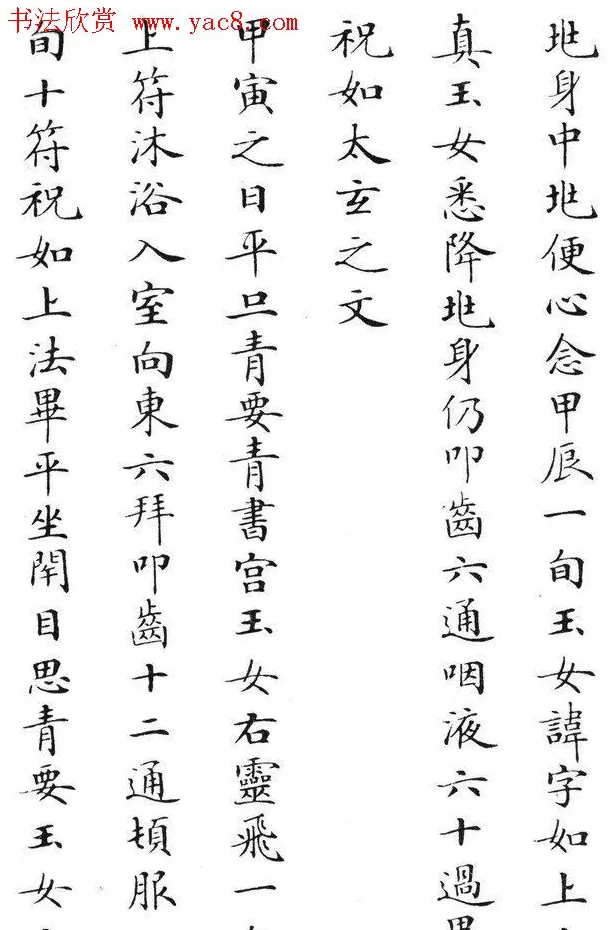 书法欣赏 www.yac8.com
兆身中兆便心念甲辰一旬玉女諱字如上
真玉女悉降兆身仍叩齒六通咽液六十過畢
祝如太玄之文
甲寅之日平旦青要青書宫玉女右靈飛一旬
上符沐浴入室向東六拜叩齒十二通頓服
旬十符祝如上法畢平坐閇目思青要玉女